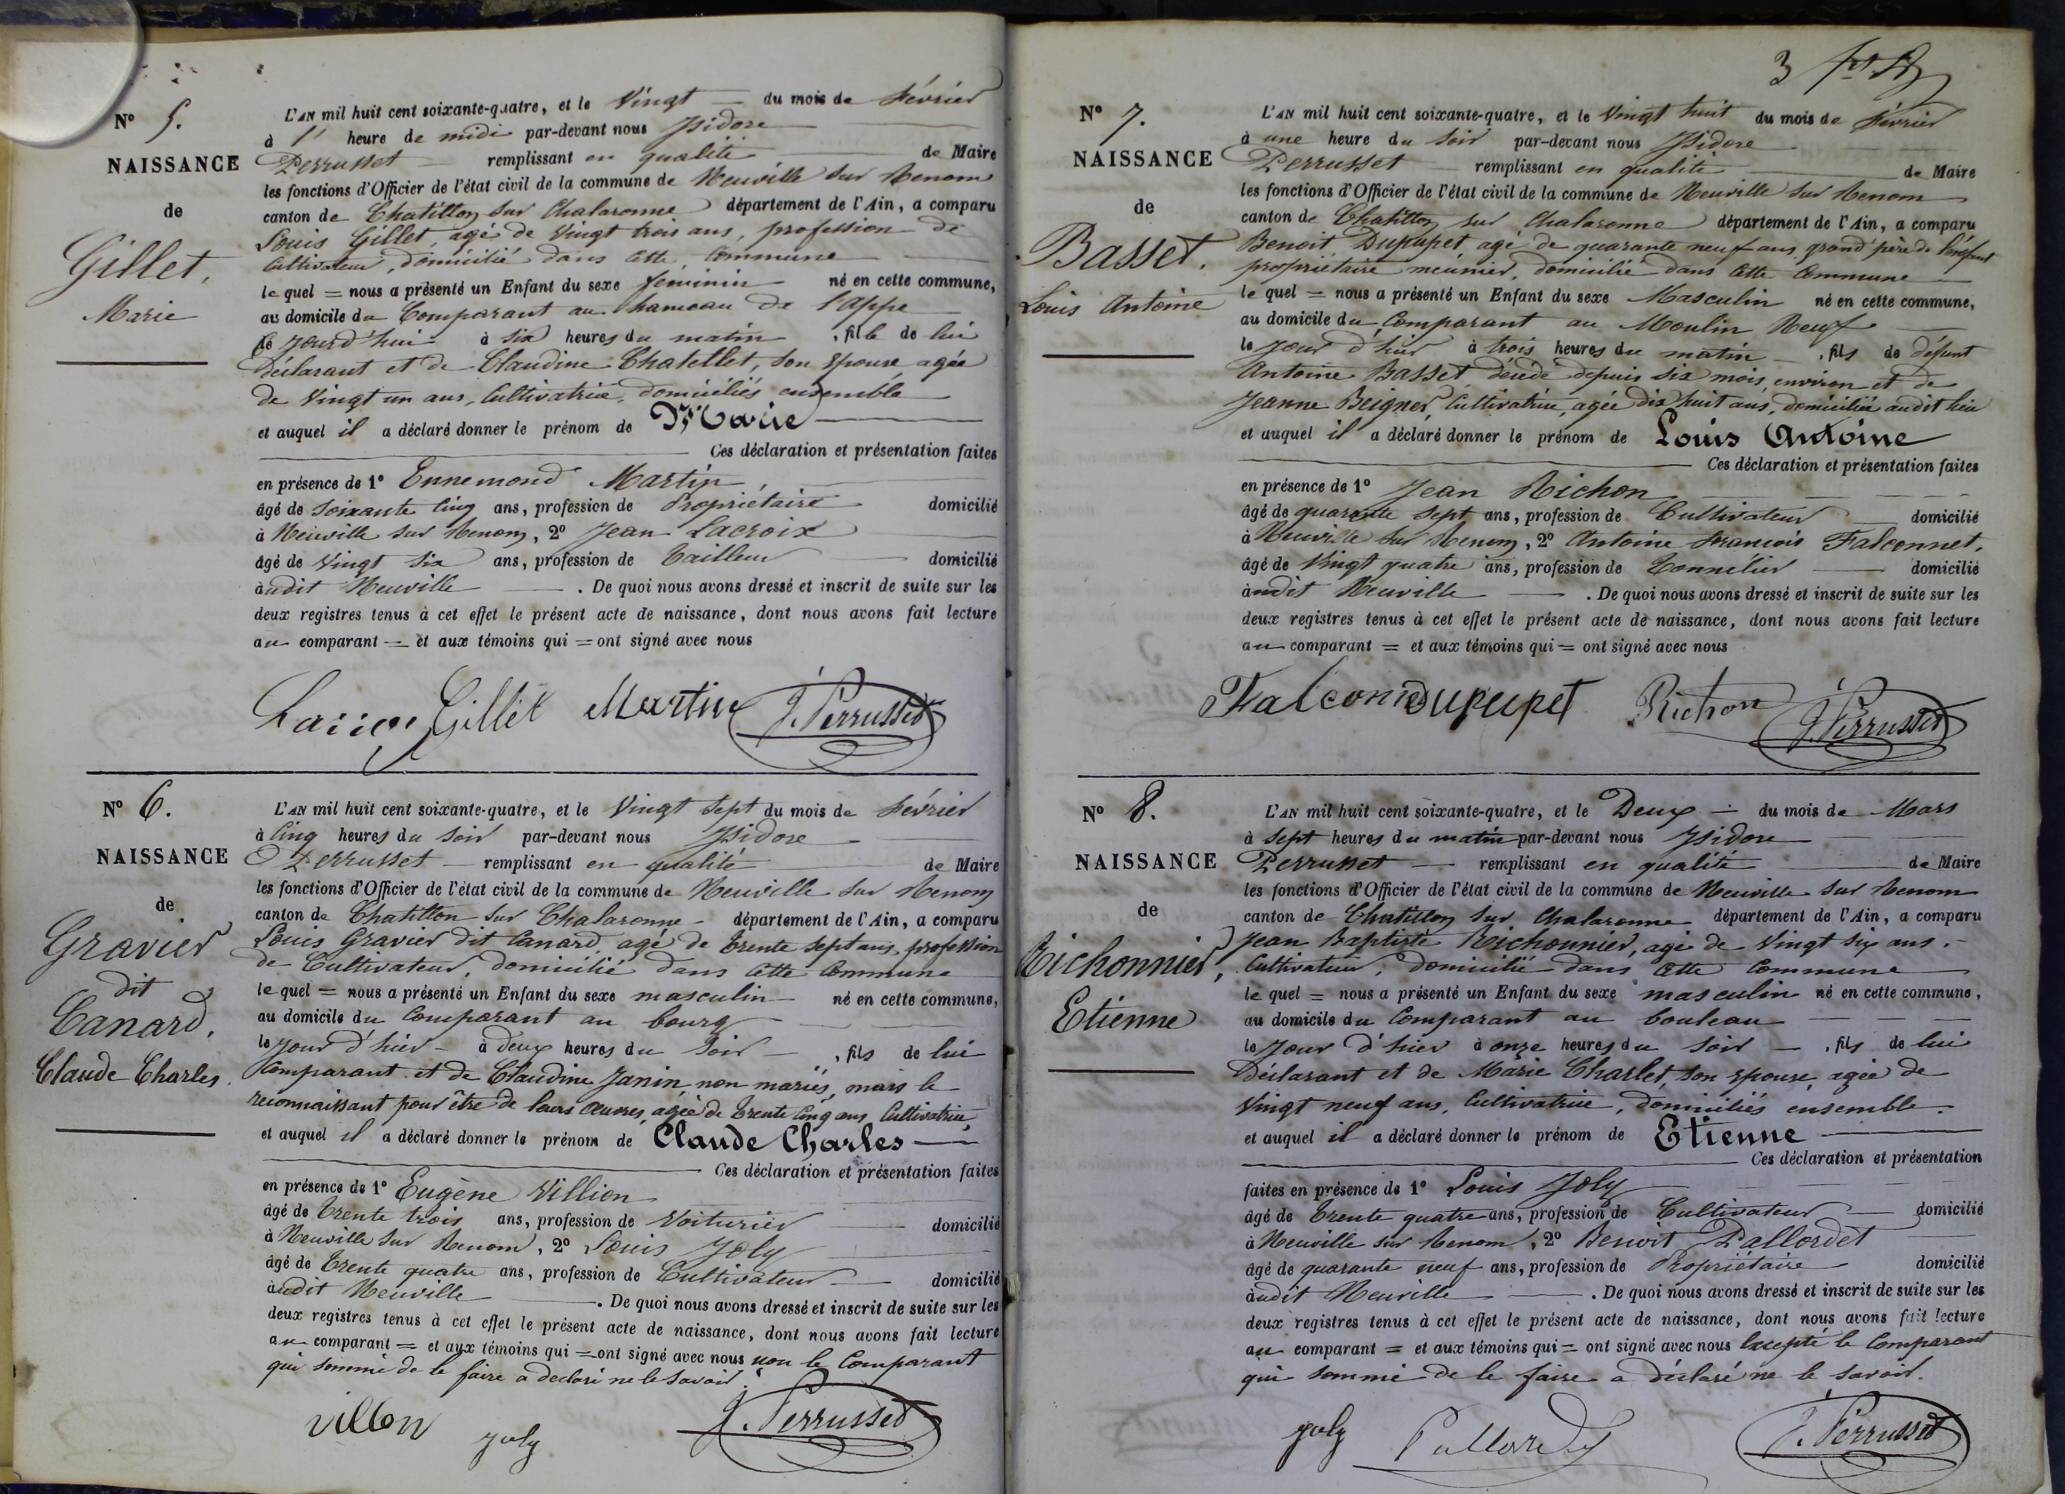 N° 5.
NAISSANCE
de
Gillet,
Marie
L'AN mil huit cent soixante-quatre, et le Vingt — du mois de février
à l' heure de midi par-devant nous Isidore
Perrusset — remplissant en qualité — de Maire
les fonctions d'Officier de l'état civil de la commune de Neuville sur Renom
canton de Chatillon sur Chalaronne département de l'Ain, a comparu
Louis Gillet, agé de Vingt trois ans, profession de
Cultivateur, domicilié dans cette Commune
le quel = nous a présenté un Enfant du sexe féminin né en cette commune,
au domicile du Comparant au hameau de l'appe
le jourd'hui à six heures du matin, fille de lui
déclarant et de Claudine Chatellet, son épouse agée
de Vingt un ans, Cultivatrice, domiciliés ensemble
et auquel il a déclaré donner le prénom de Marie
Ces déclaration et présentation faites
en présence de 1° Ennemond Martin
âgé de soixante cinq ans, profession de Propriétaire domicilié
à Neuville sur Renom, 2° Jean Lacroix
âgé de Vingt six ans, profession de Tailleur domicilié
àudit Neuville — . De quoi nous avons dressé et inscrit de suite sur les
deux registres tenus à cet effet le présent acte de naissance, dont nous avons fait lecture
au comparant = et aux témoins qui = ont signé avec nous
Gillet Martin J. Perrusset
N° 6.
NAISSANCE
de
Gravier
dit
Canard,
Claude Charles.
L'AN mil huit cent soixante-quatre, et le Vingt sept du mois de février
à Cinq heures du Soir par-devant nous Isidore
Perrusset — remplissant en qualité — de Maire
les fonctions d'Officier de l'état civil de la commune de Neuville sur Renom
canton de Chatillon sur Chalaronne département de l'Ain, a comparu
Louis Gravier dit Canard, agé de Trente sept ans, profession
de Cultivateur, domicilié dans cette Commune
le quel = nous a présenté un Enfant du sexe masculin né en cette commune,
au domicile du Comparant au bourg
le jour d'hier à deux heures du Soir, fils de lui
Comparant et de Claudine Janin non mariés, mais le
reconnaissant pour être de leurs Œuvres, agée de Trente Cinq ans, Cultivatrice,
et auquel il a déclaré donner le prénom de Claude Charles
Ces déclaration et présentation faites
en présence de 1° Eugène Villion
âgé de Trente trois ans, profession de Voiturier domicilié
à Neuville sur Renom, 2° Louis Joly
âgé de Trente quatre ans, profession de Cultivateur domicilié
àudit Neuville — . De quoi nous avons dressé et inscrit de suite sur les
deux registres tenus à cet effet le présent acte de naissance, dont nous avons fait lecture
au comparant = et aux témoins qui = ont signé avec nous non le Comparant
qui sommé de le faire a déclaré ne le savoir.
Villon joly J. Perrusset
3
N° 7.
NAISSANCE
de
Basset.
Louis Antoine
L'AN mil huit cent soixante-quatre, et le Vingt huit du mois de février
à une heure du Soir par-devant nous Isidore
Perrusset — remplissant en qualité — de Maire
les fonctions d'Officier de l'état civil de la commune de Neuville sur Renom
canton de Chatillon sur Chalaronne département de l'Ain, a comparu
Benoit Dupupet agé de quarante neuf ans, grand père de l'enfant
propriétaire meunier, domicilié dans cette Commune
le quel = nous a présenté un Enfant du sexe Masculin né en cette commune,
au domicile du Comparant au Moulin Neuf
le jour d'hui à trois heures du matin, fils de défunt
Antoine Basset décédé depuis six mois environ et de
Jeanne Beignet, Cultivatrice, agée dix huit ans, domiciliée audit lieu
et auquel il a déclaré donner le prénom de Louis Antoine
Ces déclaration et présentation faites
en présence de 1° Jean Richon
âgé de quarante sept ans, profession de Cultivateur domicilié
à Neuville sur Renom, 2° Antoine François Falconnet,
âgé de Vingt quatre ans, profession de Tonnelier domicilié
àudit Neuville — . De quoi nous avons dressé et inscrit de suite sur les
deux registres tenus à cet effet le présent acte de naissance, dont nous avons fait lecture
au comparant = et aux témoins qui = ont signé avec nous
Dupupet Richon J. Perrusset
N° 8.
NAISSANCE
de
Richonnier,
Etienne
L'AN mil huit cent soixante-quatre, et le Deux — du mois de Mars
à sept heures du matin par-devant nous Isidore
Perrusset — remplissant en qualité — de Maire
les fonctions d'Officier de l'état civil de la commune de Neuville sur Renom
canton de Chatillon sur Chalaronne département de l'Ain, a comparu
Jean Baptiste Richonnier, agé de Vingt six ans.
Cultivateur, domicilié dans cette Commune
le quel = nous a présenté un Enfant du sexe masculin né en cette commune,
au domicile du Comparant au bouleau
le jour d'hier à onze heures du soir, fils de lui
Déclarant et de Marie Charlet, son épouse, agée de
Vingt neuf ans, Cultivatrice, domiciliés ensemble.
et auquel il a déclaré donner le prénom de Etienne
Ces déclaration et présentation
faites en présence de 1° Louis Joly
âgé de Trente quatre ans, profession de Cultivateur domicilié
à Neuville sur Renom, 2° Benoit Pallordet
âgé de quarante neuf ans, profession de Propriétaire domicilié
àudit Neuville — . De quoi nous avons dressé et inscrit de suite sur les
deux registres tenus à cet effet le présent acte de naissance, dont nous avons fait lecture
au comparant = et aux témoins qui = ont signé avec nous Excepté le Comparant
qui sommé de le faire a déclaré ne le savoir.
joly J. Perrusset